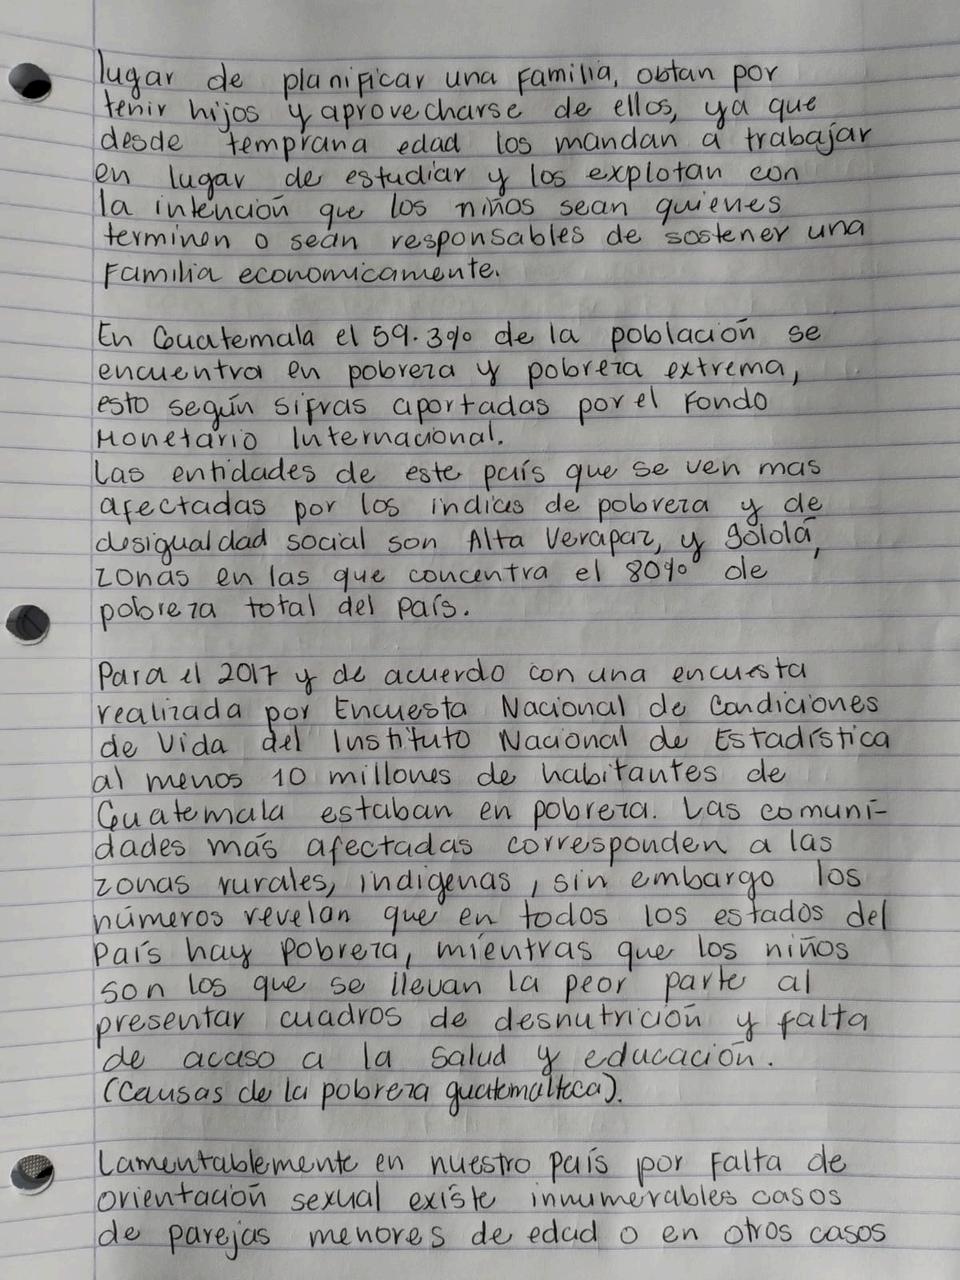 lugar de planificar una familia, obtan por
tenir hijos y aprovecharse de ellos, ya que
desde temprana edad los mandan a trabajar
en lugar de estudiar y los explotan con
la intención que los niños sean quienes
terminen o sean responsables de sostener una
familia economicamente.
En Guatemala el 59.3% de la población se
encuentra en pobreza y pobreza extrema,
esto según sifras aportadas por el Fondo
Monetario Internacional.
Las entidades de este país que se ven mas
afectadas por los indices de pobreza y de
desigualdad social son Alta Verapaz, y Sololá,
zonas en las que concentra el 80% de
pobreza total del país.
Para el 2017 y de acuerdo con una encuesta
realizada por Encuesta Nacional de Condiciones
de Vida del Instituto Nacional de Estadística
al menos 10 millones de habitantes de
Guatemala estaban en pobreza. Las comuni-
dades más afectadas corresponden a las
zonas rurales, indigenas, sin embargo los
números revelan que en todos los estados del
País hay Pobreza, mientras que los niños
son los que se llevan la peor parte al
presentar cuadros de desnutrición y falta
de acuso a la salud y educación.
(Causas de la pobreza guatemalteca).
Lamentablemente en nuestro país por falta de
orientación sexual existe innumerables casos
de parejas menores de edad o en otros casos